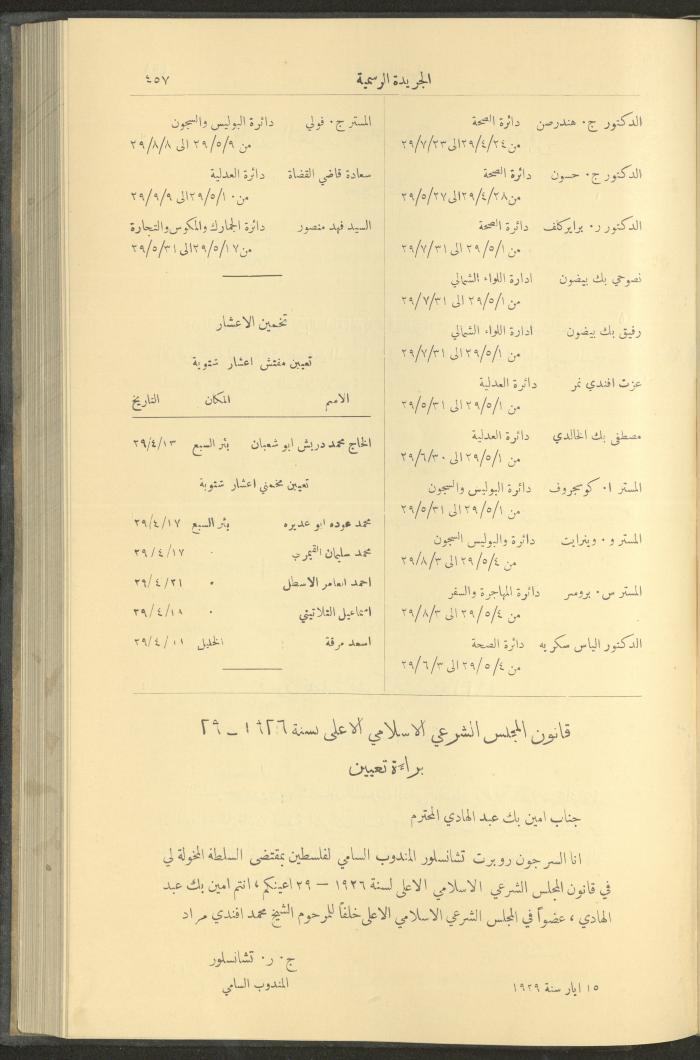 الجريدة الرسمية
٤٥٧
الدكتور ج. هندرصن دائرة الصحة
من ٢٩/٤/٢٤ الى ٢٩/٧/٢٣
الدكتور ج. حسون دائرة الصحة
من ٢٩/٤/٢٨ الى ٢٩/٥/٢٧
الدكتور ر. برايركلف دائرة الصحة
من ٢٩/٥/١ الى ٢٩/٧/٣١
نصوحي بك بيضون ادارة اللواء الشمالي
من ٢٩/٥/١ الى ٢٩/٧/٣١
رفيق بك بيضون ادارة اللواء الشمالي
من ٢٩/٥/١ الى ٢٩/٧/٣١
عزت افندي نمر دائرة العدلية
من ٢٩/٥/١ الى ٢٩/٥/٣١
مصطفى بك الخالدي دائرة العدلية
من ٢٩/٥/١ الى ٢٩/٦/٣٠
المستر ا. كوسجروف دائرة البوليس والسجون
من ٢٩/٥/١ الى ٢٩/٥/٣١
المستر و. وينرايت دائرة والبوليس السجون
من ٢٩/٥/٤ الى ٢٩/٨/٣
المستر س. برومسر دائرة المهاجرة والسفر
من ٢٩/٥/٤ الى ٢٩/٨/٣
الدكتور الياس سكريه دائرة الصحة
من ٢٩/٥/٤ الى ٢٩/٦/٣
المستر ج. فولي دائرة البوليس والسجون
من ٢٩/٥/٩ الى ٢٩/٨/٨
سعادة قاضي القضاة دائرة العدلية
من ٢٩/٥/١٠ الى ٢٩/٩/٩
السيد فهد منصور دائرة الجمارك والمكوس والتجارة
من ٢٩/٥/١٧ الى ٢٩/٥/٣١
تخمين الاعشار
تعيين مفتش اعشار شتوية
الاسم المكان التاريخ
الحاج محمد درويش ابو شعبان بئر السبع ٢٩/٤/١٣
تعيين مخمني اعشار شتوية
محمد عوده ابو عديره بئر السبع ٢٩/٤/١٧
محمد سليمان القيمري " ٢٩/٤/١٧
احمد العامر الاسطل " ٢٩/٤/٢١
اسماعيل الثلاثيني " ٢٩/٤/١٨
اسعد مرقة الخليل ٢٩/٤/١١
قانون المجلس الشرعي الاسلامي الاعلى لسنة ١٩٢٦ ـ ٢٩
براءة تعيين
جناب امين بك عبد الهادي المحترم
انا السر جون روبرت تشانسلور المندوب السامي لفلسطين بمقتضى السلطة المخولة لي
في قانون المجلس الشرعي الاسلامي الاعلى لسنة ١٩٢٦ – ٢٩ اعينكم، انتم امين بك عبد
الهادي، عضواً في المجلس الشرعي الاسلامي الاعلى خلفاً للمرحوم الشيخ محمد افندي مراد
ج. ر. تشانسلور
١٥ ايار سنة ١٩٢٩ المندوب السامي